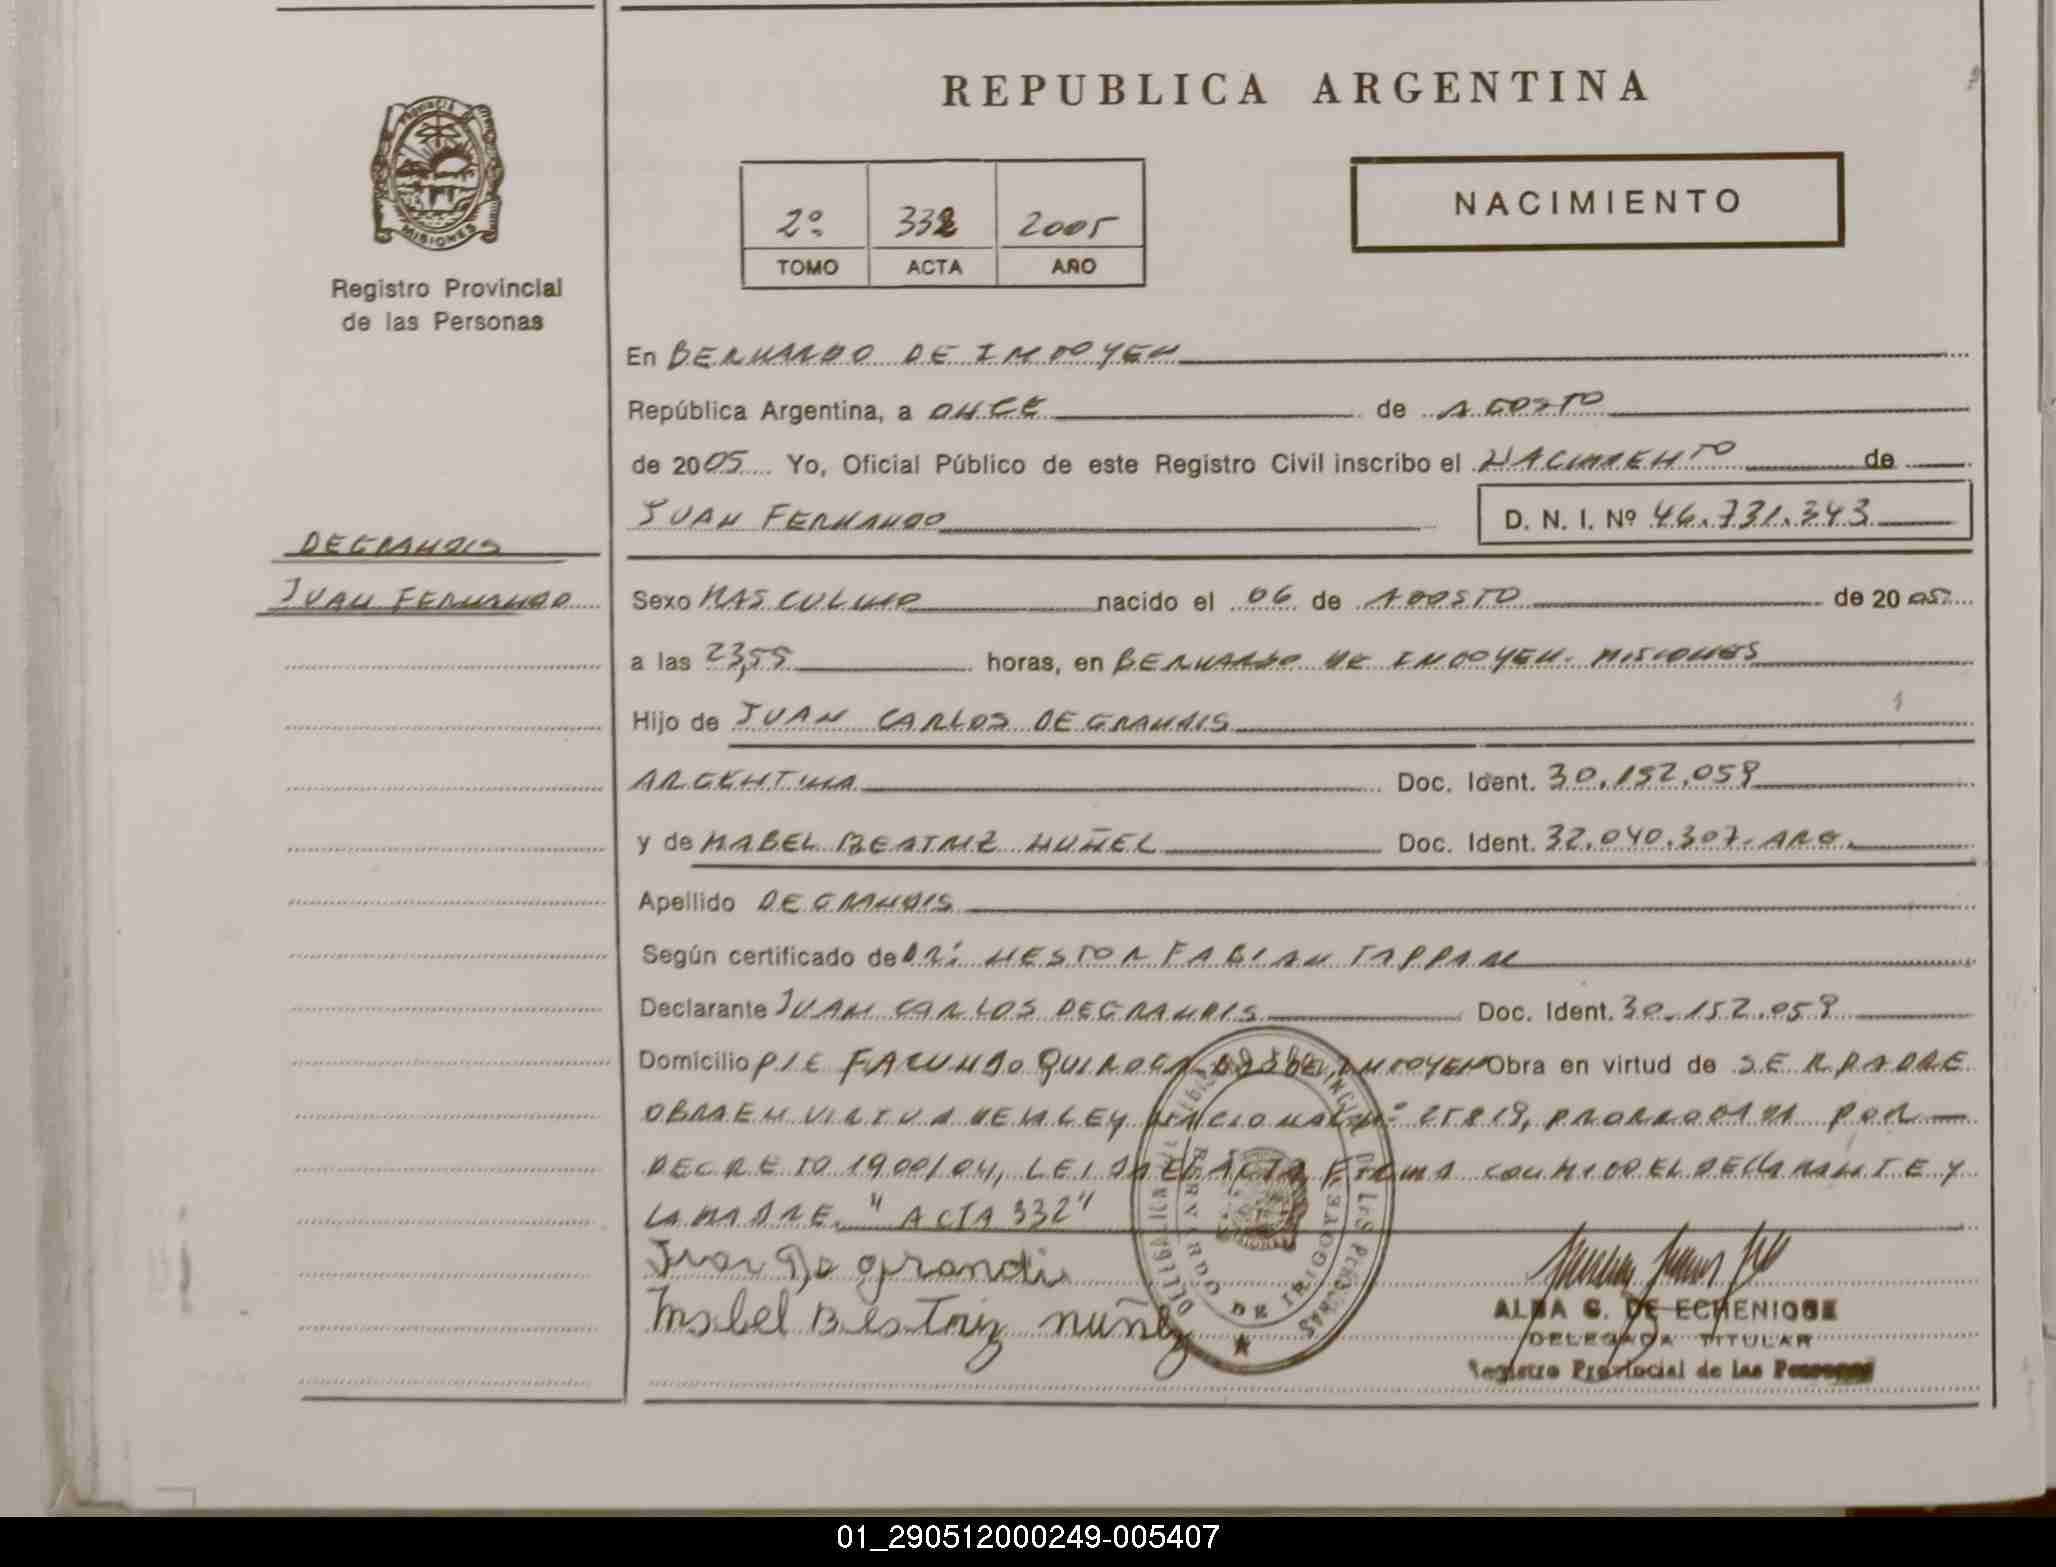 REPUBLICA ARGENTINA
PROVINCIA
MISIONES
Registro Provincial
de las Personas
2º 332 2005
TOMO ACTA AÑO
NACIMIENTO
En BERNARDO DE IRIGOYEN
República Argentina, a ONCE de AGOSTO
de 2005 Yo, Oficial Público de este Registro Civil inscribo el NACIMIENTO de
JUAN FERNANDO D. N. I. Nº 46.731.343
DEGRANDIS
JUAN FERNANDO
Sexo MASCULINO nacido el 06 de AGOSTO de 2005
a las 23,55 horas, en BERNARDO DE IRIGOYEN. MISIONES
Hijo de JUAN CARLOS DEGRANDIS
ARGENTINA Doc. Ident. 30.152.059
y de MABEL BEATRIZ NUÑEZ Doc. Ident. 32.040.307. ARG.
Apellido DEGRANDIS
Según certificado de DR. NESTOR FABIAN TAPPARI
Declarante JUAN CARLOS DEGRANDIS Doc. Ident. 30.152.059
Domicilio PJE FACUNDO QUIROGA BDO DE IRIGOYEN Obra en virtud de SER PADRE
OBRA EN VIRTUD DE LA LEY NACIONAL Nº 25819, PRORROGADA POR
DECRETO 1900/04, LEIDA EL ACTA FIRMA CONMIGO EL DECLARANTE Y
LA MADRE. "ACTA 332"
Juan Degrandi
Mabel Beatriz nuñez
REGISTRO PROVINCIAL DE LAS PERSONAS
BERNARDO DE IRIGOYEN
ALBA G. DE ECHENIQUE
DELEGADA TITULAR
Registro Provincial de las Personas
01_290512000249-005407